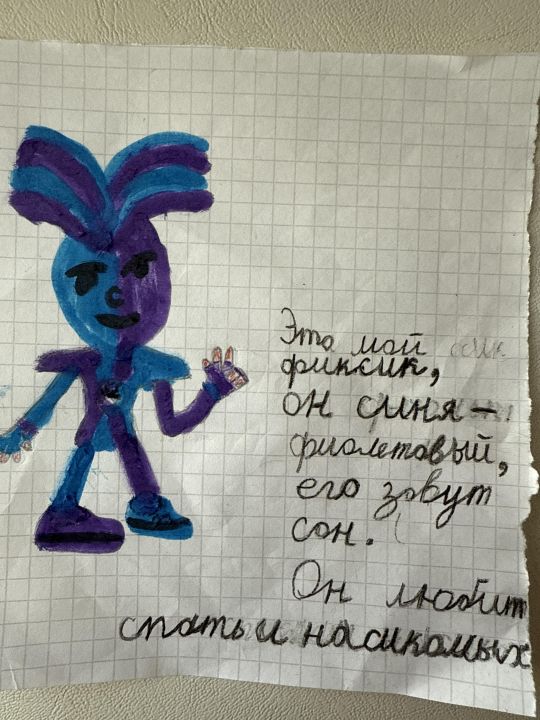 Это мой
фиксик,
он синя-
фиолетовый,
его зовут
сон.
Он любит
спать и насикомых